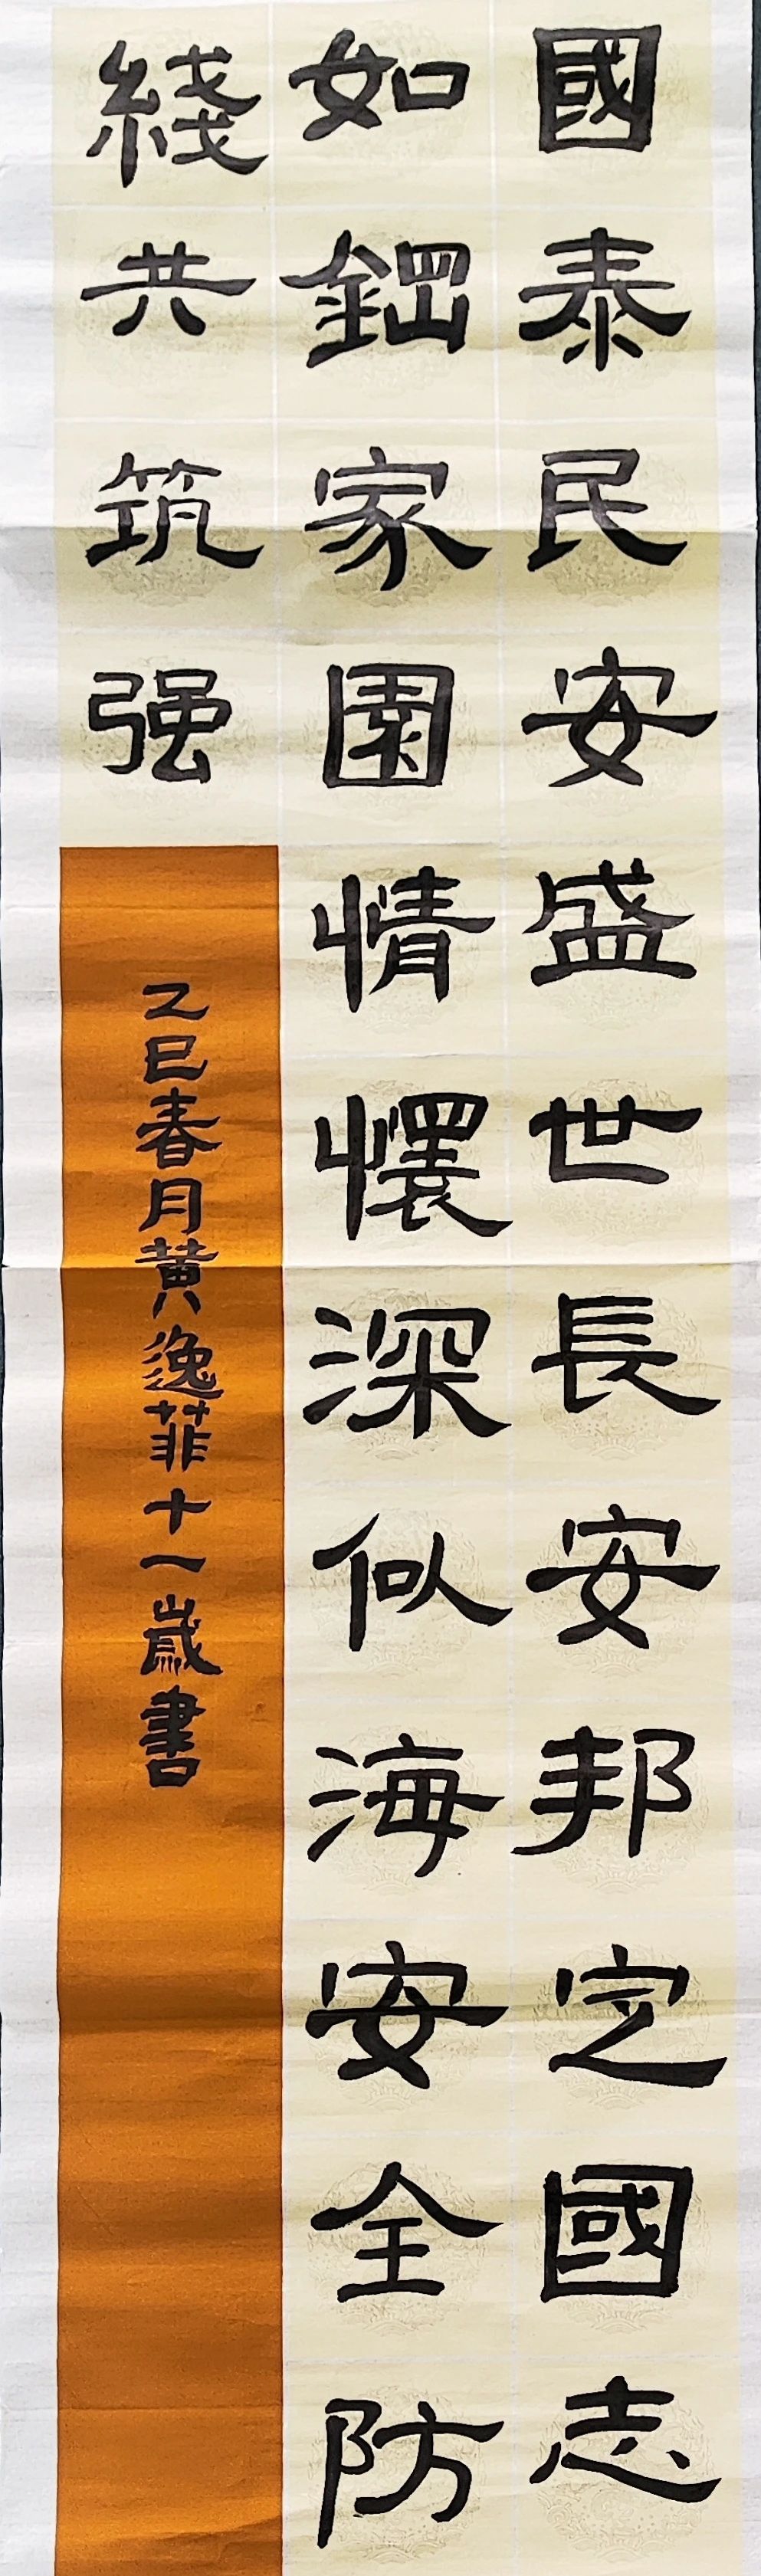 國泰民安盛世長安邦定國志
如鋼家園情懷深似海安全防
綫共筑强
乙巳春月黄逸菲十一歲書